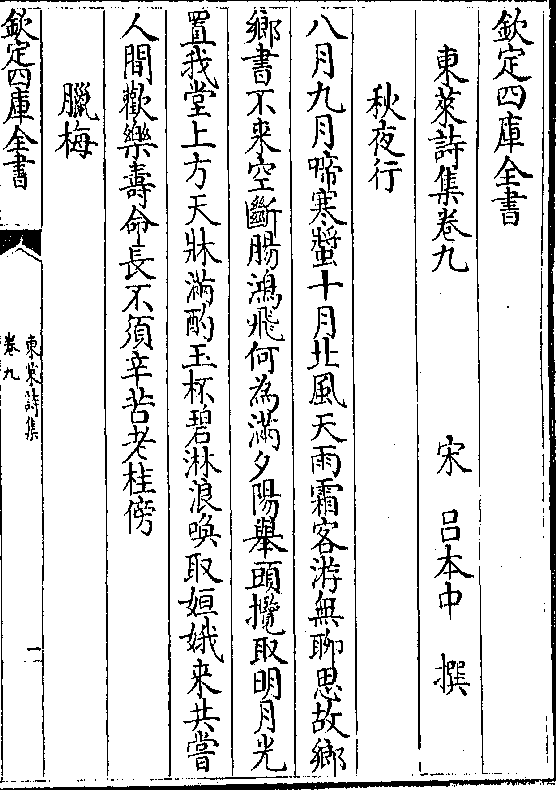 欽定四庫全書
東萊詩集卷九　宋　呂本中　撰
秋夜行
八月九月啼寒螿十月北風天雨霜客游無聊思故鄉
鄉書不来空斷腸鴻飛何為滿夕陽舉頭攬取明月光
置我堂上方天牀滿酌玉杯碧淋浪喚取姮娥来共嘗
人間歡樂壽命長不須辛苦老桂傍
臘梅
欽定四庫全書
東萊詩集
卷九
一